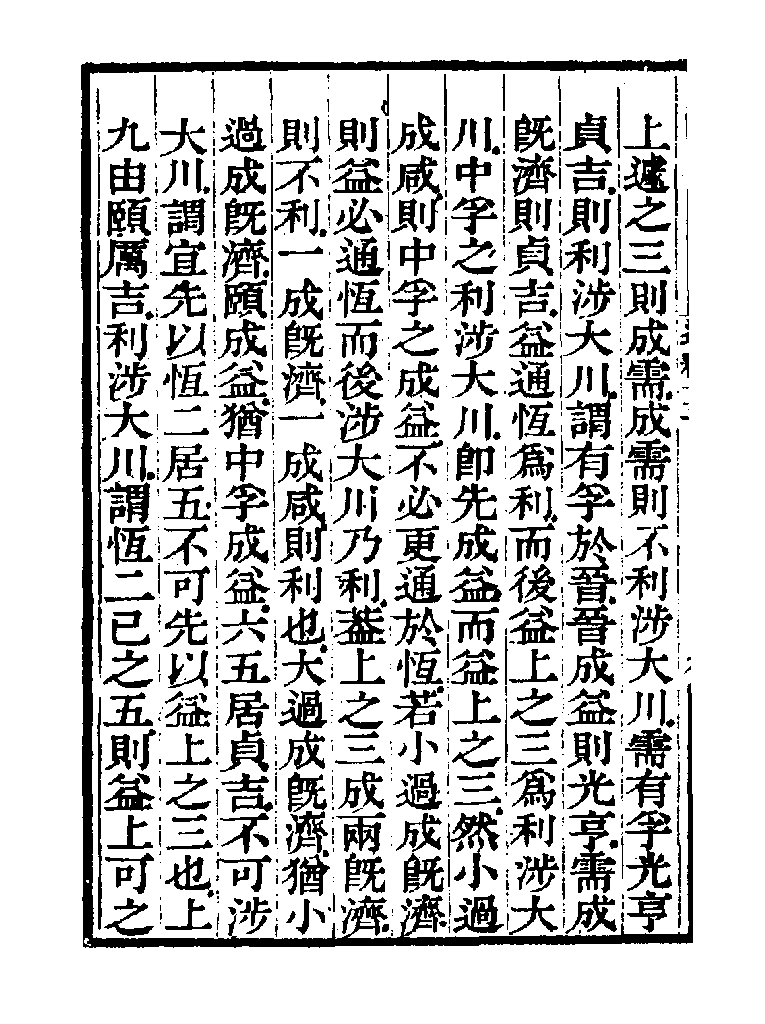 上遽之三則成需成需則不利涉大川需有孚光亨
貞吉則利涉大川謂有孚於晉晉成益則光亨需成
旣濟則貞吉益通恆爲利而後益上之三爲利涉大
川中孚之利涉大川卽先成益而益上之三然小過
成咸則中孚之成益不必更通於恆若小過成旣濟
則益必通恆而後涉大川乃利葢上之三成兩旣濟
則不利一成旣濟一成咸則利也大過成旣濟猶小
過成旣濟頤成益猶中孚成益六五居貞吉不可涉
大川謂宜先以恆二居五不可先以益上之三也上
九由頤厲吉利涉大川謂恆二已之五則益上可之